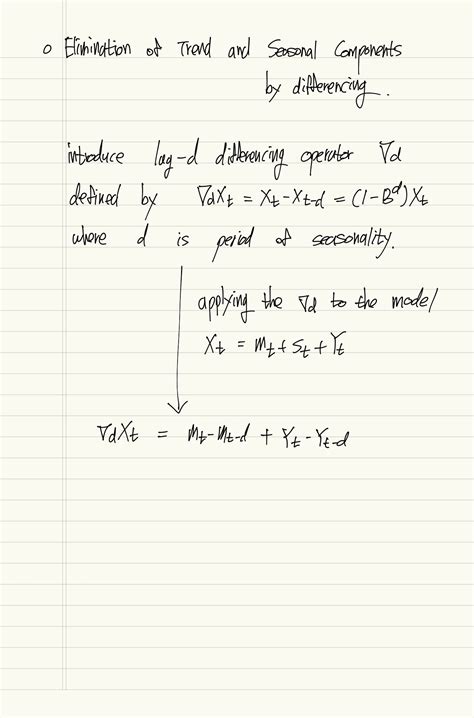 o Elimination of Trend and Seasonal Components
by differencing.
introduce lag-d differencing operator ∇d
defined by ∇dXt = Xt-Xt-d = (1-B^d)Xt
where d is period of seasonality.
applying the ∇d to the model
Xt = mt+st+Yt
∇dXt = mt-mt-d + Yt-Yt-d